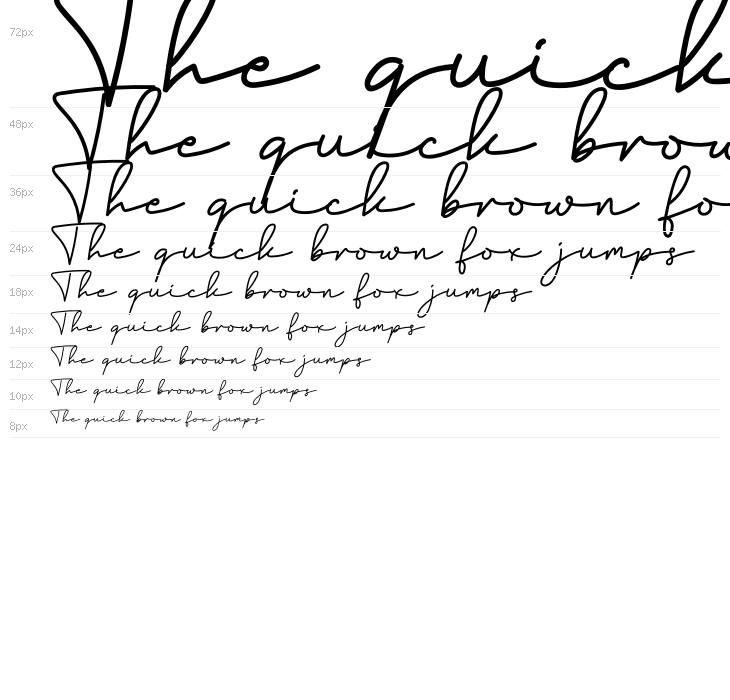 72px The quick
48px The quick brow
36px The quick brown fo
24px The quick brown fox jumps
18px The quick brown fox jumps
14px The quick brown fox jumps
12px The quick brown fox jumps
10px The quick brown fox jumps
8px The quick brown fox jumps